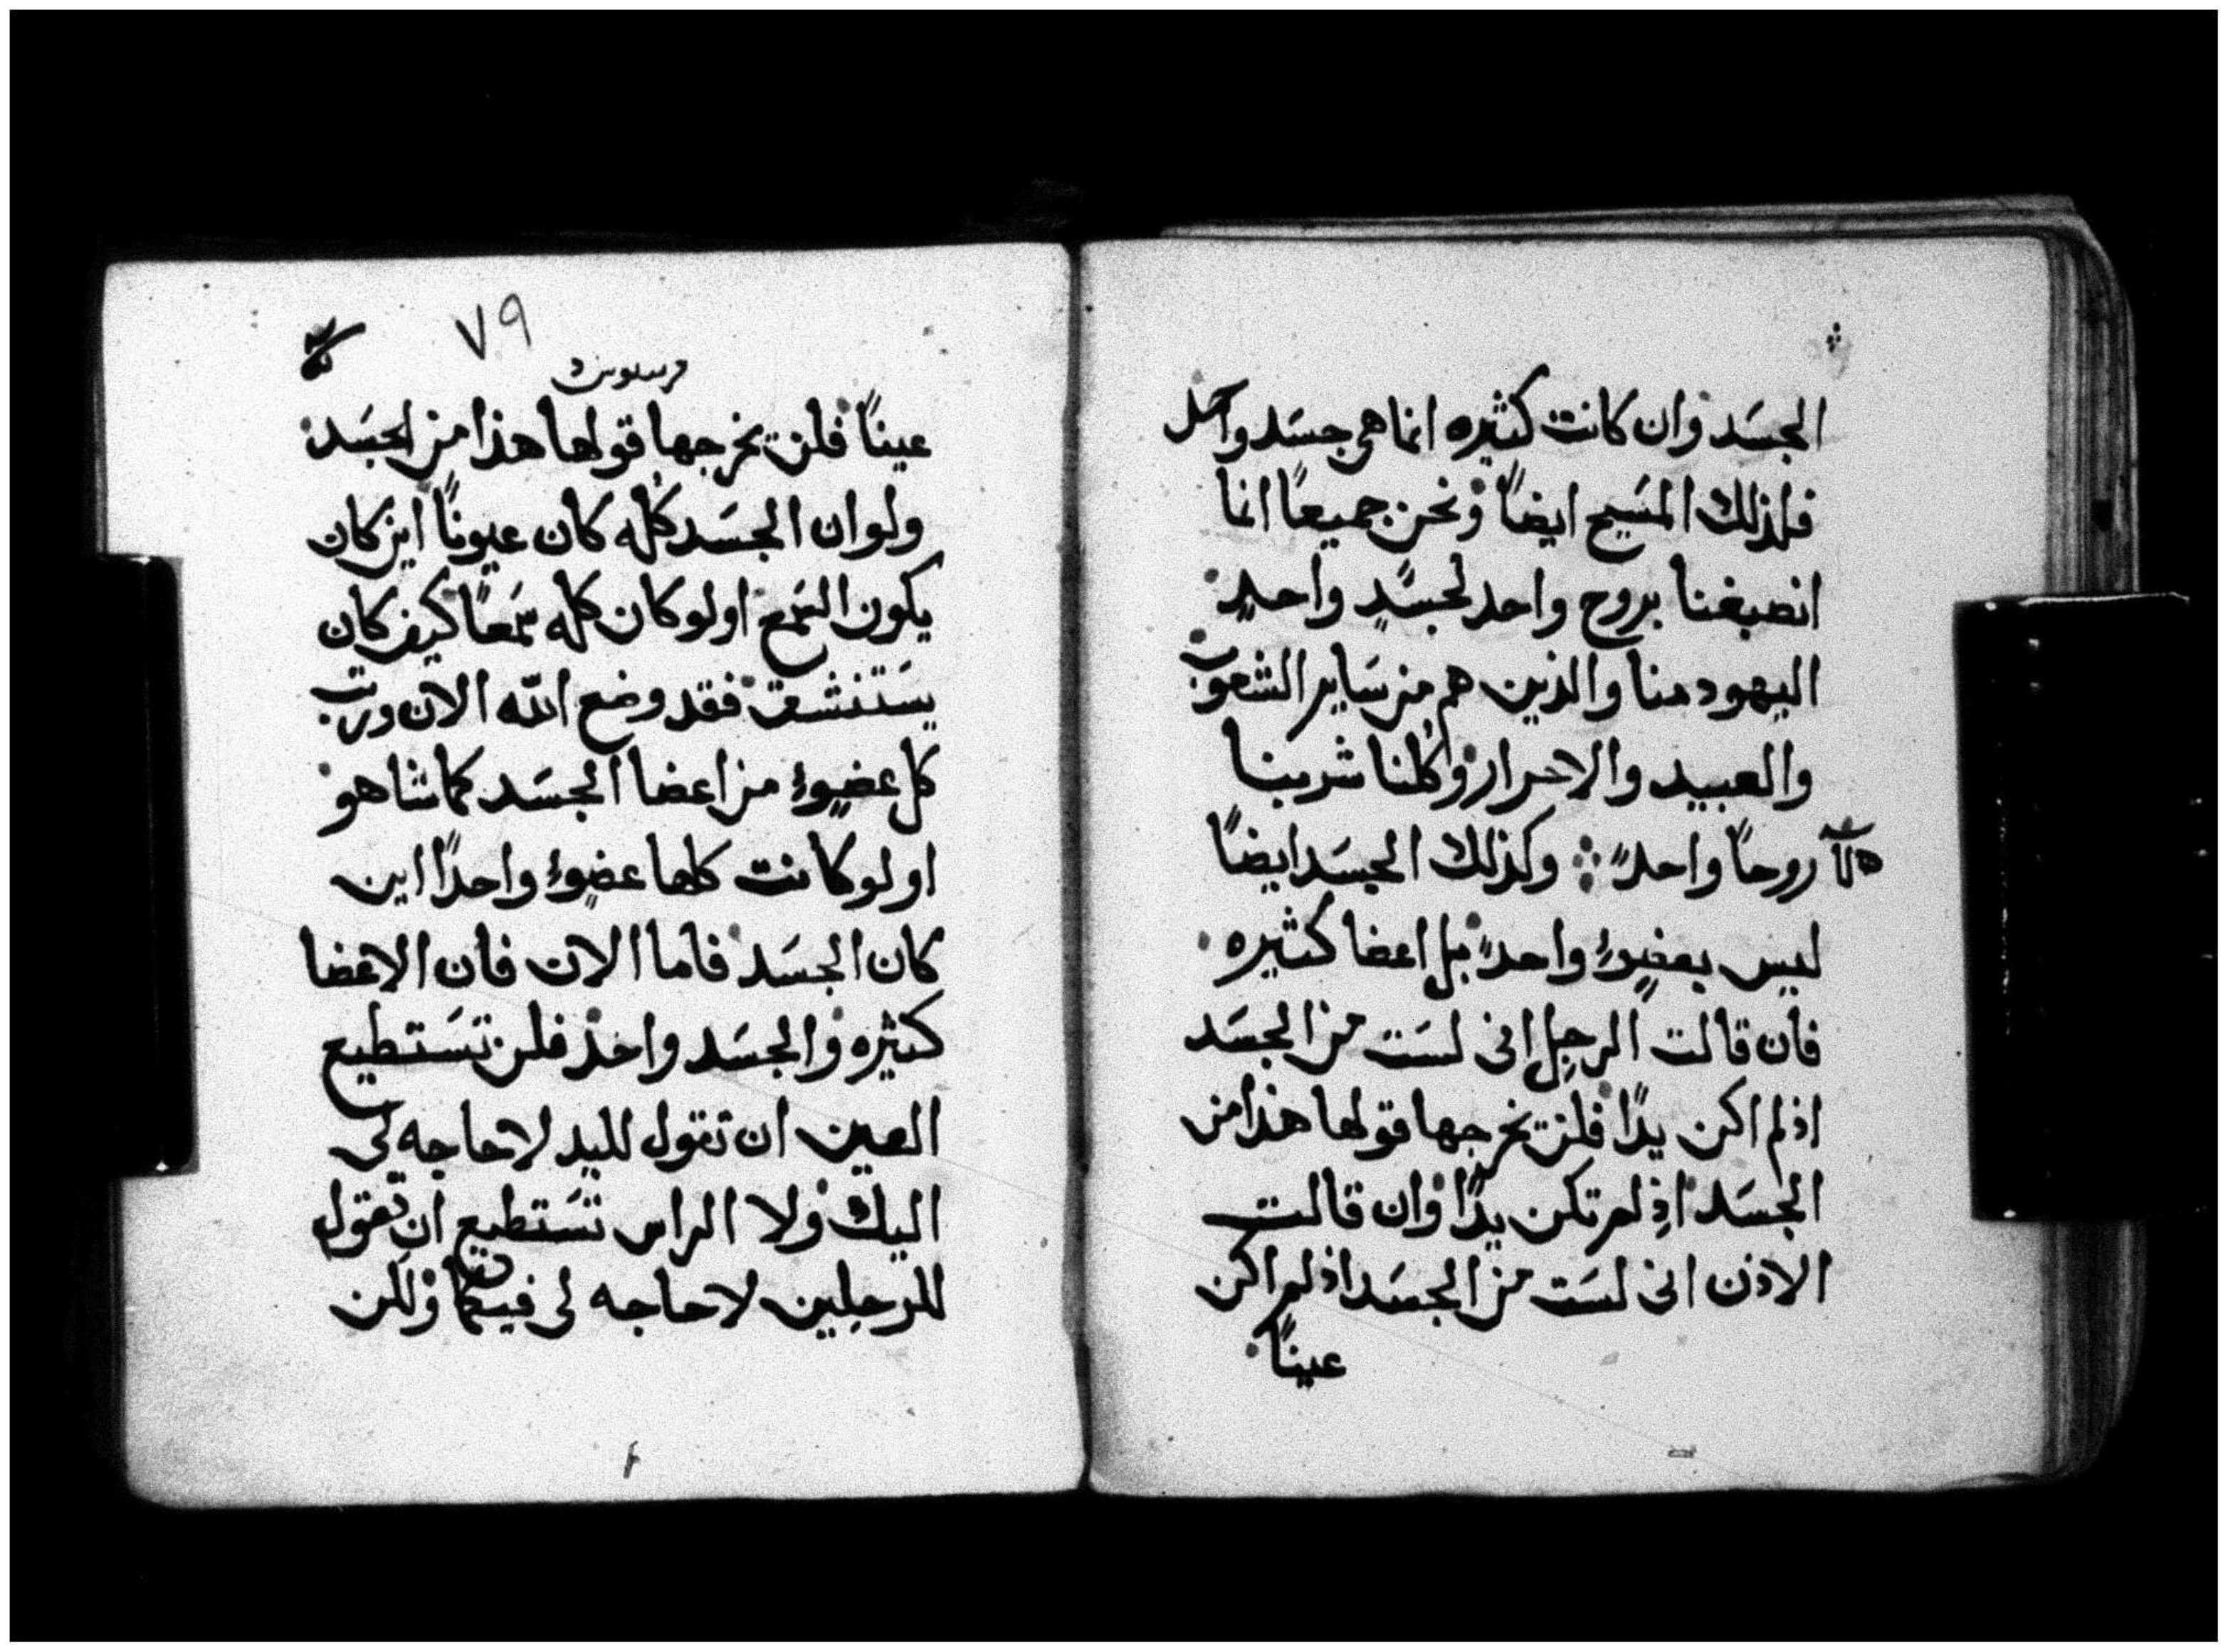 الجسَد وان كانت كثيره انما هي جسَد واحد
فلذلك المسَيح ايضاً ونحن جميعاً انما
انصبغنا بروح واحد لجسَدٍ واحدٍ
اليهود منا والذين هم من سَاير الشعوب
والعبيد والاحرار وكلنا شربنا
روحاً واحداً وكذلك الجسَد ايضاً
ليس بعضوٍ واحدٍ بل اعضا كثيره
فان قالت الرجل اني لسَت من الجسَد
اذ لم اكن يدًا فلن تخرجها قولها هذا من
الجسَد اذ لم تكن يدًا وان قالت
الاذن اني لسَت من الجسَد اذ لم اكن
عيناً
٧٩
عيناً فلن تخرجها قولها هذا من الجسَد
ولو ان الجسَد كله كان عيوناً اين كان
يكون السَمع او لو كان كله سَمعاً كيف كان
يسَتنشق فقد وضع الله الان ورتب
كل عضوٍ من اعضا الجسَد كما شا هو
او لو كانت كلها عضوٍ واحداً اين
كان الجسَد فاما الان فان الاعضا
كثيره والجسَد واحد فلن تسَتطيع
العين ان تقول لليد لا حاجه لي
اليك ولا الراس تسَتطيع ان تقول
للرجلين لا حاجه لي فيكما ولكن